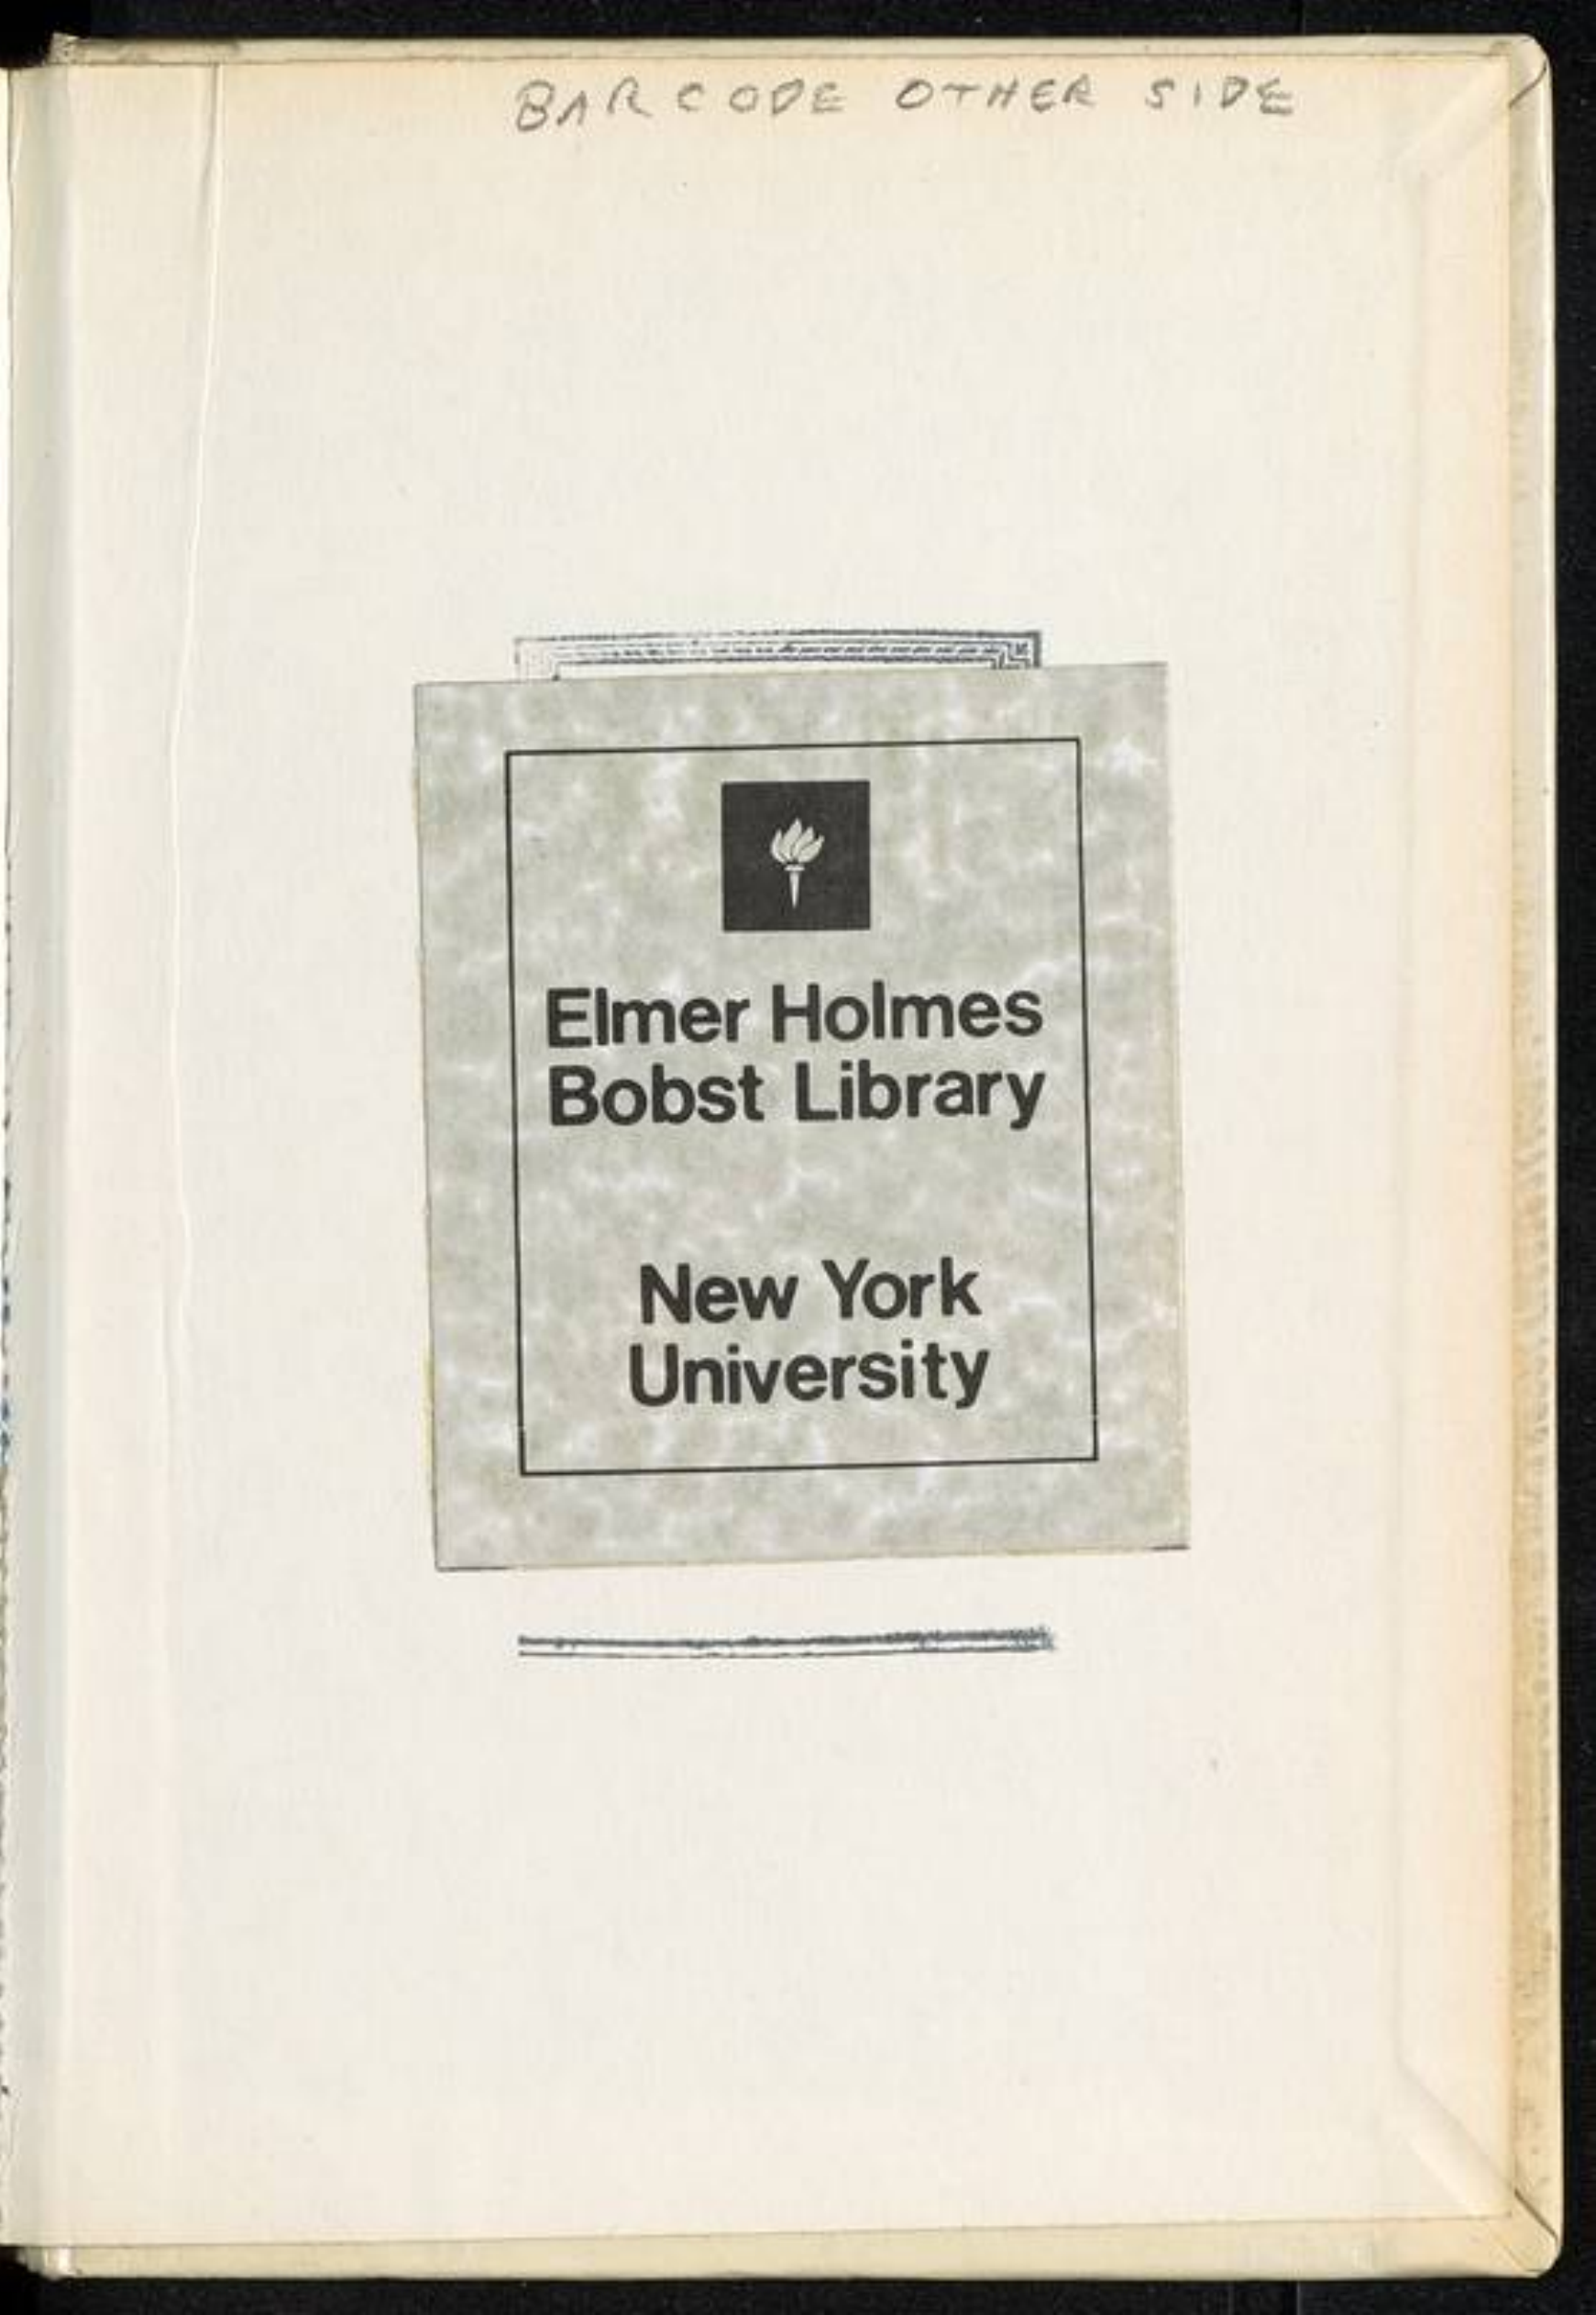 BARCODE OTHER SIDE
Elmer Holmes
Bobst Library
New York
University